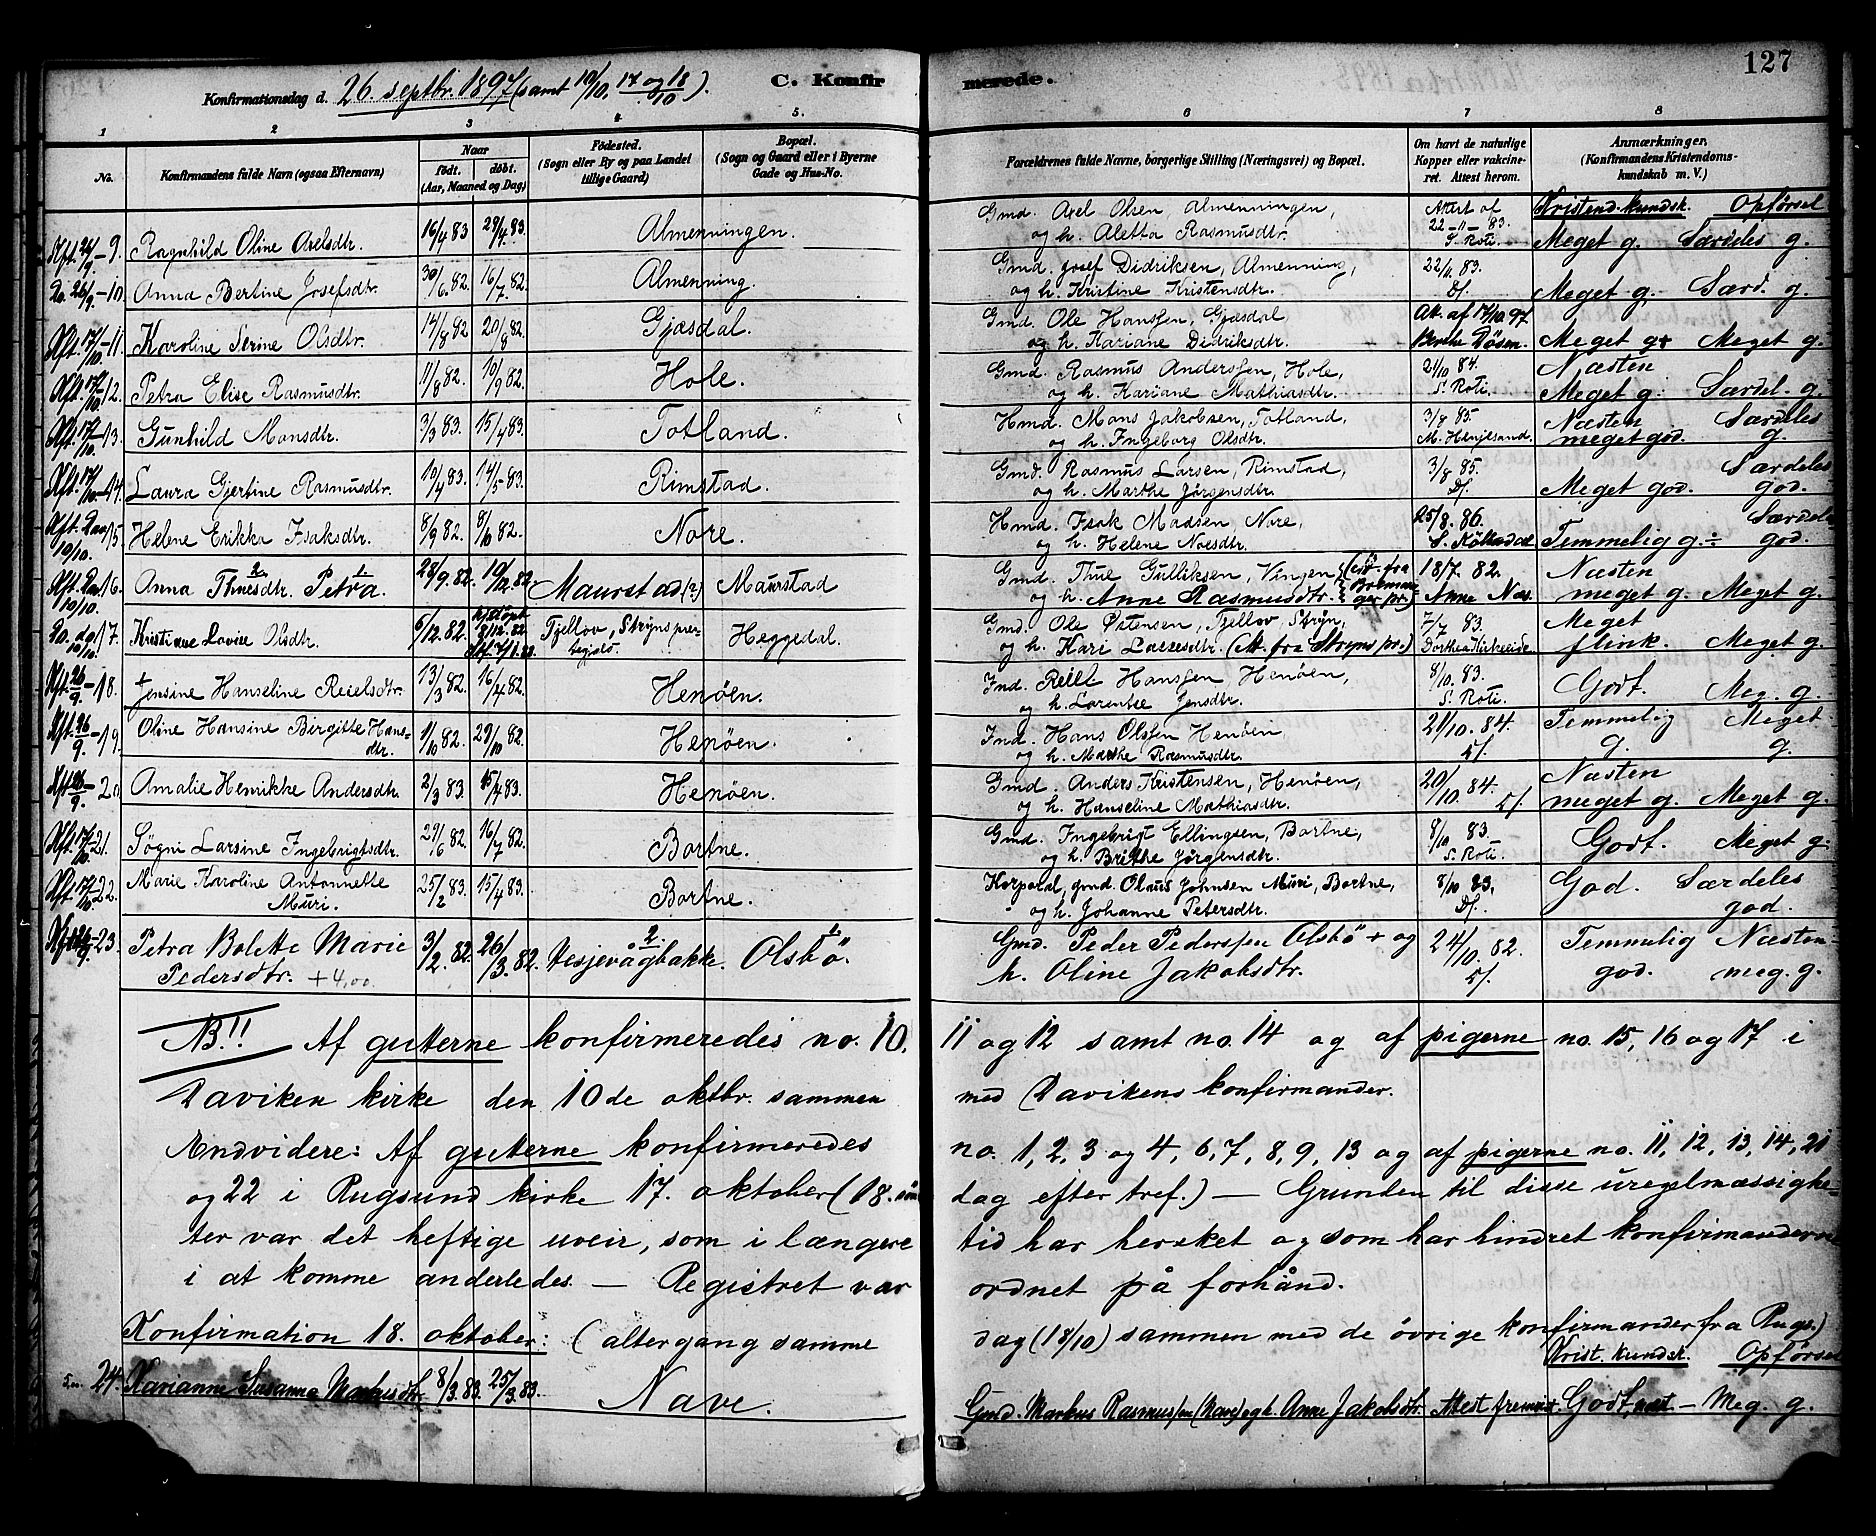 127
Konfirmationsdag d. 26. septbr. 1897 (samt 10/10, 17 og 18/10). C. Konfirmerede.
1 2 3 4 5. 6 7 8
No. Konfirmandens fulde Navn (ogsaa Efternavn) Naar født. døbt. (Aar, Maaned og Dag) Fødested. (Sogn eller By og paa Landet tillige Gaard) Bopæl. (Sogn og Gaard eller i Byerne Gade og Hus-No. Forældrenes fulde Navne, borgerlige Stilling (Næringsvei) og Bopæl. Om havt de naturlige Kopper eller vakcineret. Attest herom. Anmærkninger. (Konfirmandens Kristendomskundskab m. V.)
Kristend.kundsk. Opførsel
Kft. 26/9 - 9. Ragnhild Oline Axelsdtr. 16/4 83 29/4 83. Almenningen. Gmd. Axel Olsen, Almenningen, og h. Aletta Rasmusdtr. Attest af 22-11-83. S. Roti. Meget g. Særdeles g.
Do. 26/9 - 10 Anna Bertine Josefsdtr. 30/6 82. 16/7 82. Almenning. Gmd. Josef Didriksen, Almenning, og h. Kristine Kristensdtr. 22/11 83. D/. Meget g. Særd. g.
Kft. 17/10 - 11. Karoline Serine Olsdtr. 14/8 82 20/8 82. Gjæsdal. Gmd. Ole Hansen, Gjæsdal og h. Kariane Didriksdtr. At. af 17/10 97. Berthe Døsen. Meget g+ Meget g.
Kft. 17/10 - 12. Petra Elise Rasmusdtr. 11/8 82. 10/9 82. Hole. Gmd. Rasmus Anderssen, Hole, og h. Kariane Mathiasdtr. 21/10 84. S. Roti. Næsten Meget g. Særdel. g.
Kft. 17/10 - 13. Gunhild Monsdtr. 3/3 83. 15/4 83. Totland. Hmd. Mons Jakobsen, Totland, og h. Ingeborg Olsdtr. 3/8 85. M. Henjesand. Næsten meget god. Særdeles g.
Kft. 17/10 - 14. Laura Gjertine Rasmusdtr. 10/4 83. 14/5 83. Rimstad. Gmd. Rasmus Larsen, Rimstad, og h. Marthe Jørgensdtr. 3/8 85. D/. Meget god. Særdeles god.
Kft. Dav 10/10. 15. Helene Erikka Isaksdtr. 8/9 82. 8/10 82. Nore. Hmd. Isak Madsen, Nore, og h. Helene Noesdtr. 25/8. 86. Temmelig g. ÷ Særdeles god.
Kft. Dav 10/10. 16. Anna Thuesdtr. Petra. 28/9. 82. 10/12. 82. Maurstad (?) Maurstad Gmd. Thue Gulliksen, Vingen, og h. Anne Rasmusdtr. 18/7. 82. Anne Næs. Næsten meget g. Meget g.
Do. do 10/10. 17. Kristiane Lovise Olsdtr. 6/12. 82. Tjellov, Strynspregjeld Heggedal. Gmd. Ole Østensen, Tjellov, Stryn, og h. Kari Lassesdtr. (At. fra Stryns pr.) 7/7 83. Dorthea Kirkeeide. Meget flink. Meget g.
Kft. 26/9 - 18. Jensine Hanseline Reielsdtr. 13/3 82. 16/4 82. Henøen. Ind. Reiel Hanssen Henøen, og h. Lorentse Jensdtr. 8/10. 83. S. Roti. Godt. Meg. g.
Kft. 26/9. - 19. Oline Hansine Birgitte Hansdtr. 1/10 82. 29/10 82. Henøen. Ind. Hans Olssen Henøen og h. Marthe Rasmusdtr. 21/10. 84. D/. Temmelig g. Meget g.
Kft. 26/9. - 20 Amalie Henrikke Andersdtr. 2/3 83. 15/4 83. Henøen. Gmd. Anders Kristensen, Henøen, og h. Hanseline Mathiasdtr. 20/10. 84. D/. Næsten meget g. Meget g.
Kft. 17/10 - 21. Søgni Larsine Ingebrigtsdtr. 29/6 82. 16/7 82. Bortne. Gmd. Ingebrigt Ellingsen, Bortne, og h. Brithe Jørgensdtr. 8/10. 83. S. Roti. Godt. Meget g.
Kft. 17/10 - 22. Marie Karoline Antonnette Muri. 25/2 83. 15/4 83. Bortne. Korporal, gmd. Olaus Johnsen Muri, Bortne, og h. Johanne Petersdtr. 8/10 83. D/. God. Særdeles god.
Kft. 26/9. - 23. Petra Bolette Marie Pedersdtr. +4,00 3/2. 82. 26/3. 82. Hesjevågbakke. Olsbö. Gmd. Peder Pederssen Olsbö + og h. Oline Jakobsdtr. 24/10. 82. D/. Temmelig god. Næsten meg. g.
NB!! Af gutterne konfirmeredes no. 10, 11 og 12 samt no. 14 og af pigerne no. 15, 16 og 17 i
Daviken kirke den 10de oktbr. sammen med Davikens konfirmander.
Endvidere: Af gutterne konfirmeredes no. 1, 2, 3 og 4, 6, 7, 8, 9, 13 og af pigerne no. 11, 12, 13, 14, 21
og 22 i Rugsund kirke 17. oktober (18. søndag efter tref.) — Grunden til disse uregelmæssighe-
ter var det heftige uveir, som i længere tid har hersket og som har hindret konfirmanderne
i at komme anderledes. — Registret var ordnet på forhånd.
Konfirmation 18. oktober: (altergang samme dag (18/10) sammen med de øvrige konfirmander fra Rugs.)
Krist. kundsk. Opførsel
24. Karianne Susanna Markusdtr. 8/3. 83. 25/3. 83. Nave. Gmd. Markus Rasmussen (Nave) og h. Anne Jakobsdtr. Attest fremvist. Godt, næst — Meg. g.